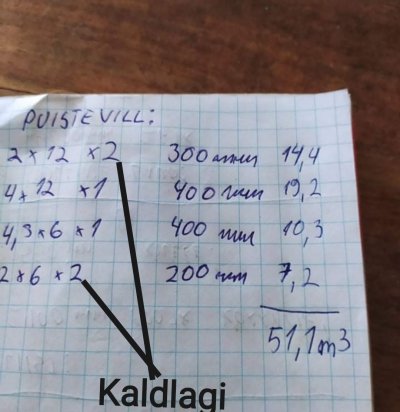 PUISTEVILL:
2 x 12 x 2 300 mm 14,4
4 x 12 x 1 400 mm 19,2
4,3 x 6 x 1 400 mm 10,3
2 x 6 x 2 200 mm 7,2
51,1 m3
Kaldlagi